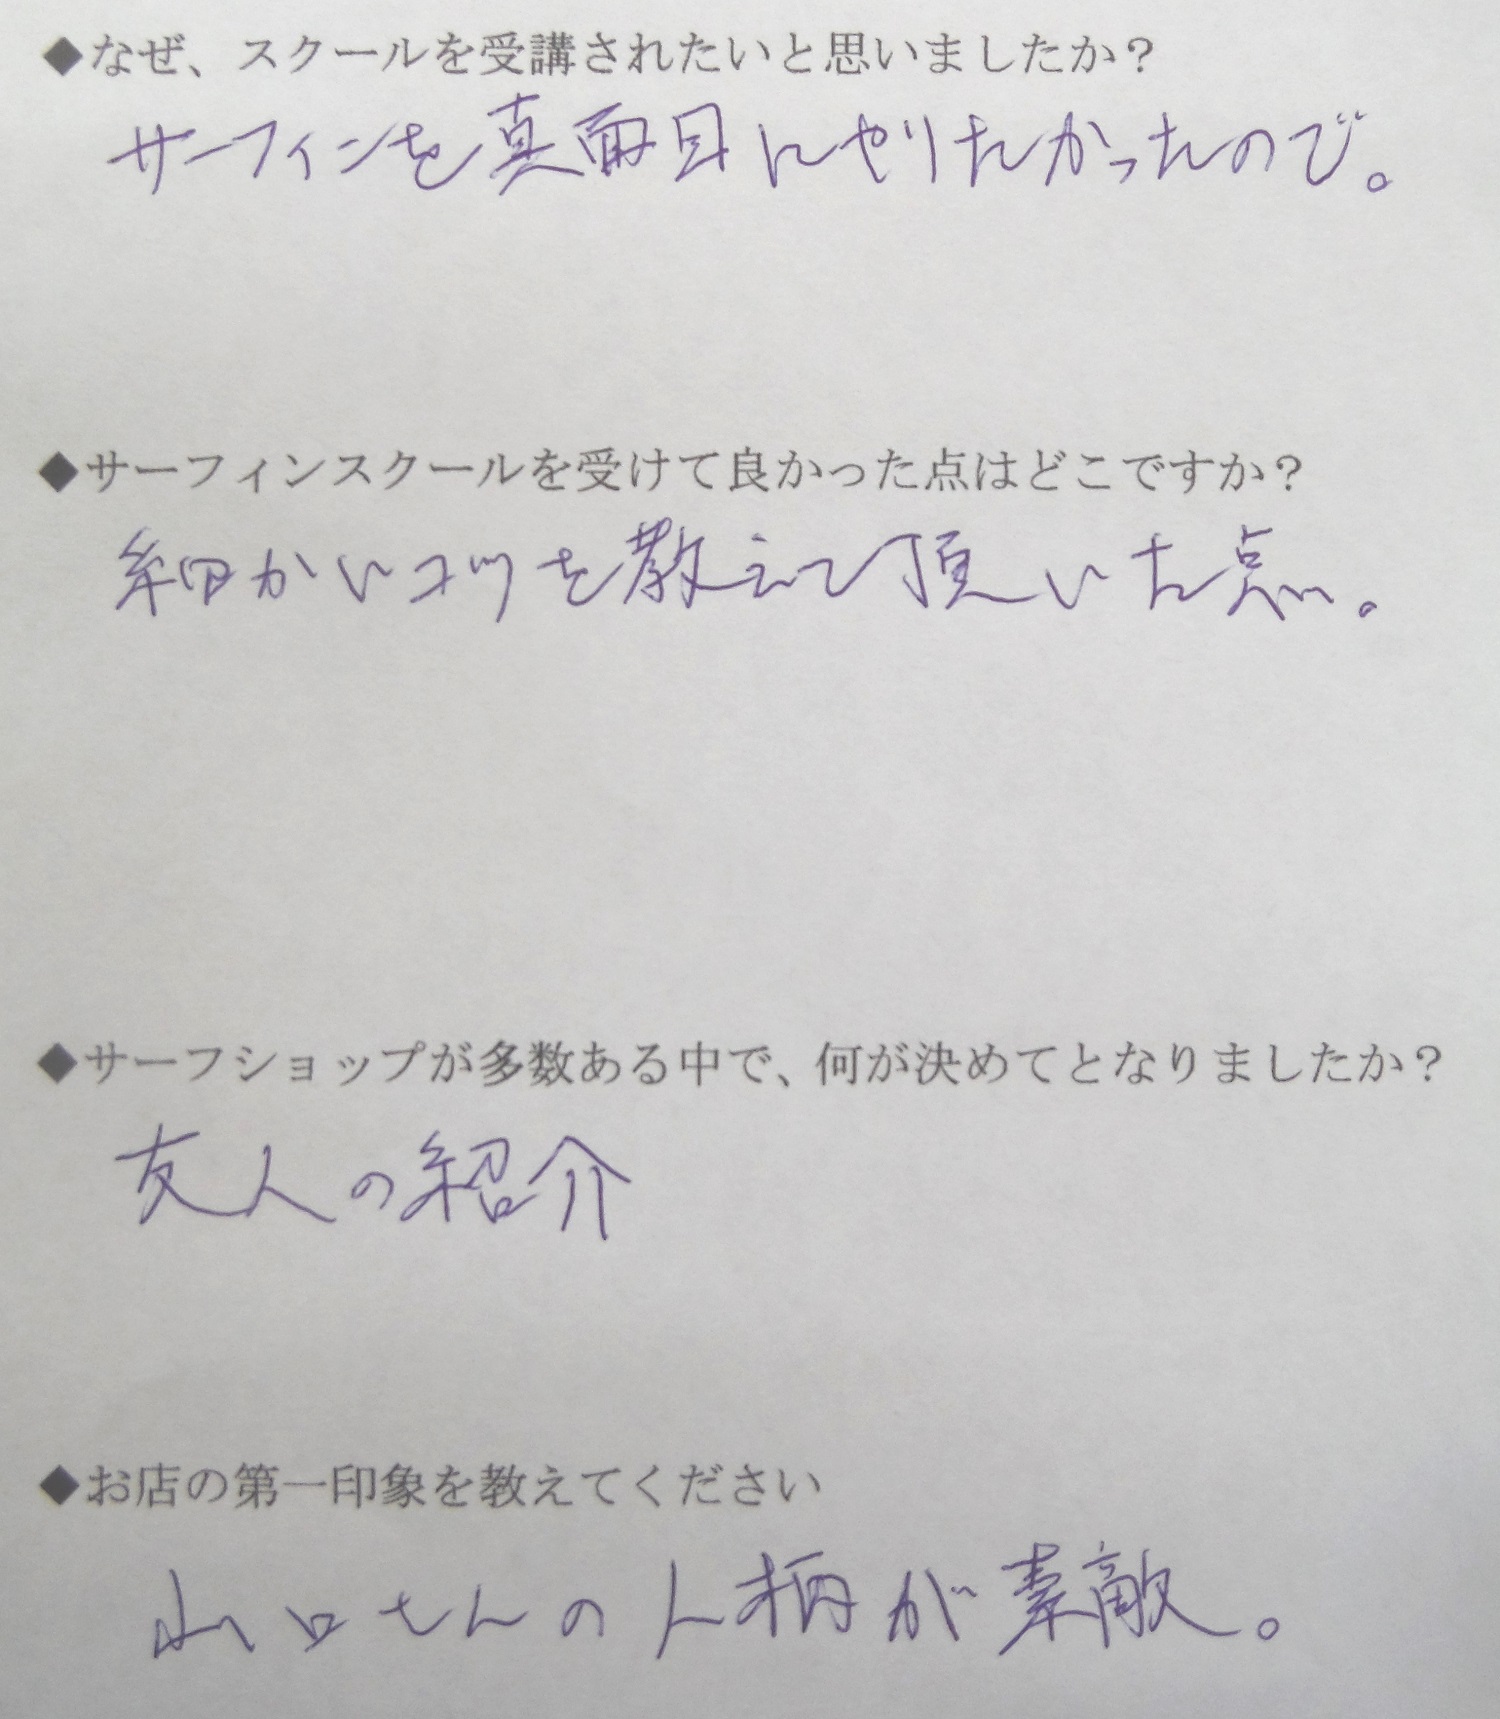 ◆なぜ、スクールを受講されたいと思いましたか？
サーフィンを真面目にやりたかったので。
◆サーフィンスクールを受けて良かった点はどこですか？
細かいコツを教えて頂いた点。
◆サーフショップが多数ある中で、何が決めてとなりましたか？
友人の紹介
◆お店の第一印象を教えてください
山口さんの人柄が素敵。